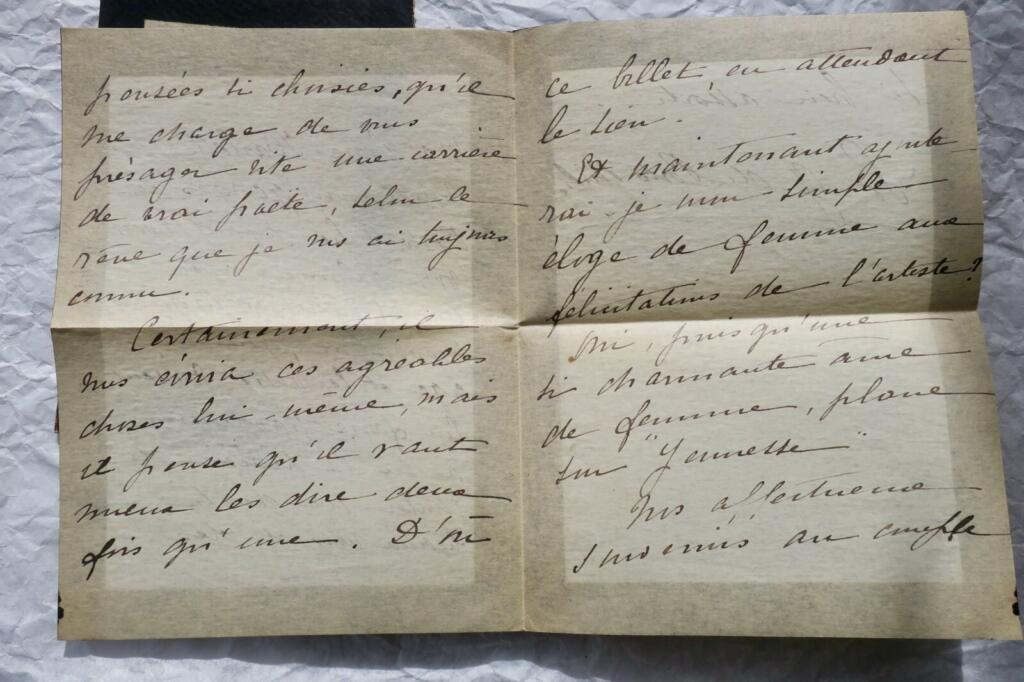 pensées si choisies, qu'il
me charge de vous
présager vite une carrière
de vrai poète, selon le
rêve que je vous ai toujours
connu.
Certainement, il
vous écrira ces agréables
choses lui-même, mais
il pense qu'il vaut
mieux les dire deux
fois qu'une. D'où
ce billet en attendant
le sien.
Et maintenant ajoute
rai-je mon simple
éloge de femme aux
félicitations de l'artiste?
Oui, puisqu'une
si charmante âme
de femme, plane
sur "Jeunesse"
Nos affectueux
souvenirs au couple